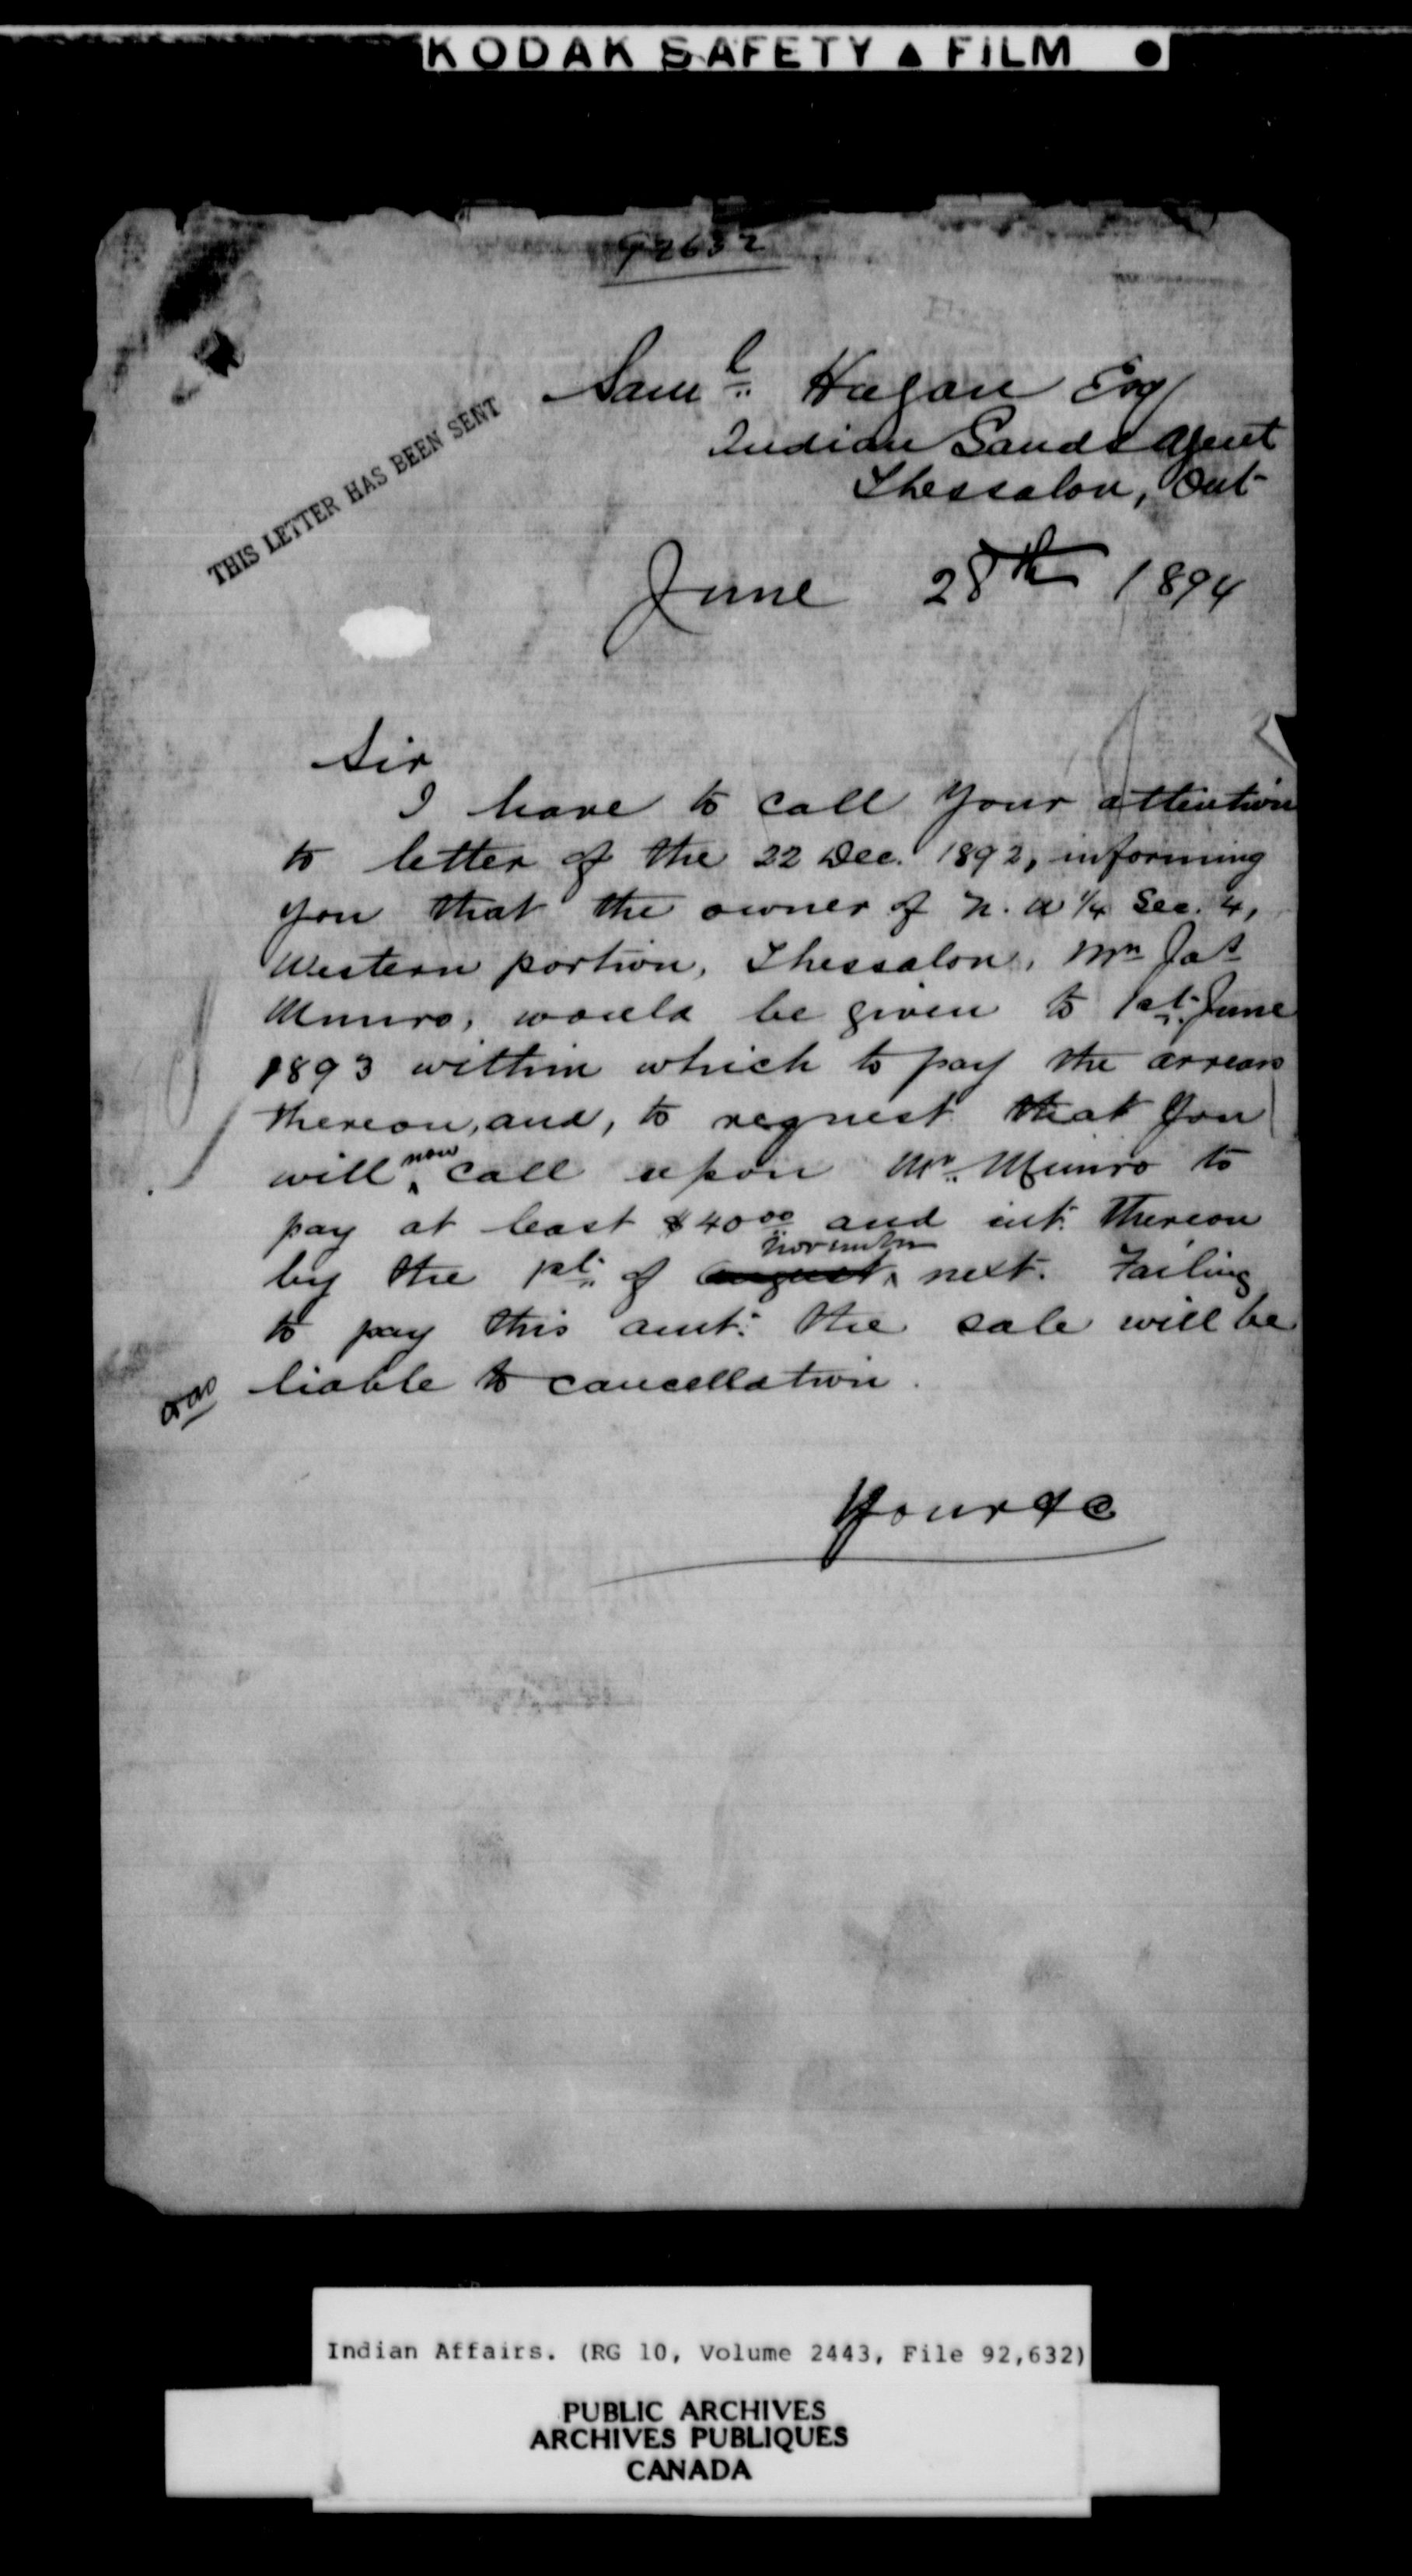 KODAK SAFETY ▲ FILM ●
92632
Saml Hagan Esq
Indian Lands Agent
Thessalon, Ont
THIS LETTER HAS BEEN SENT
June 28th 1894
Sir
I have to call your attention
to letter of the 22 Dec. 1892, informing
you that the owner of N. W ¼ Sec. 4,
Western portion, Thessalon, Mr Jas
Munro, would be given to 1st June
1893 within which to pay the arrears
thereon, and, to request that you
will now call upon Mr. Munro to
pay at least $40 00 and int. thereon
by the 1st of august November next. Failing
to pay this amt. the sale will be
liable to cancellation.
Yours &c
Indian Affairs. (RG 10, Volume 2443, File 92,632)
PUBLIC ARCHIVES
ARCHIVES PUBLIQUES
CANADA